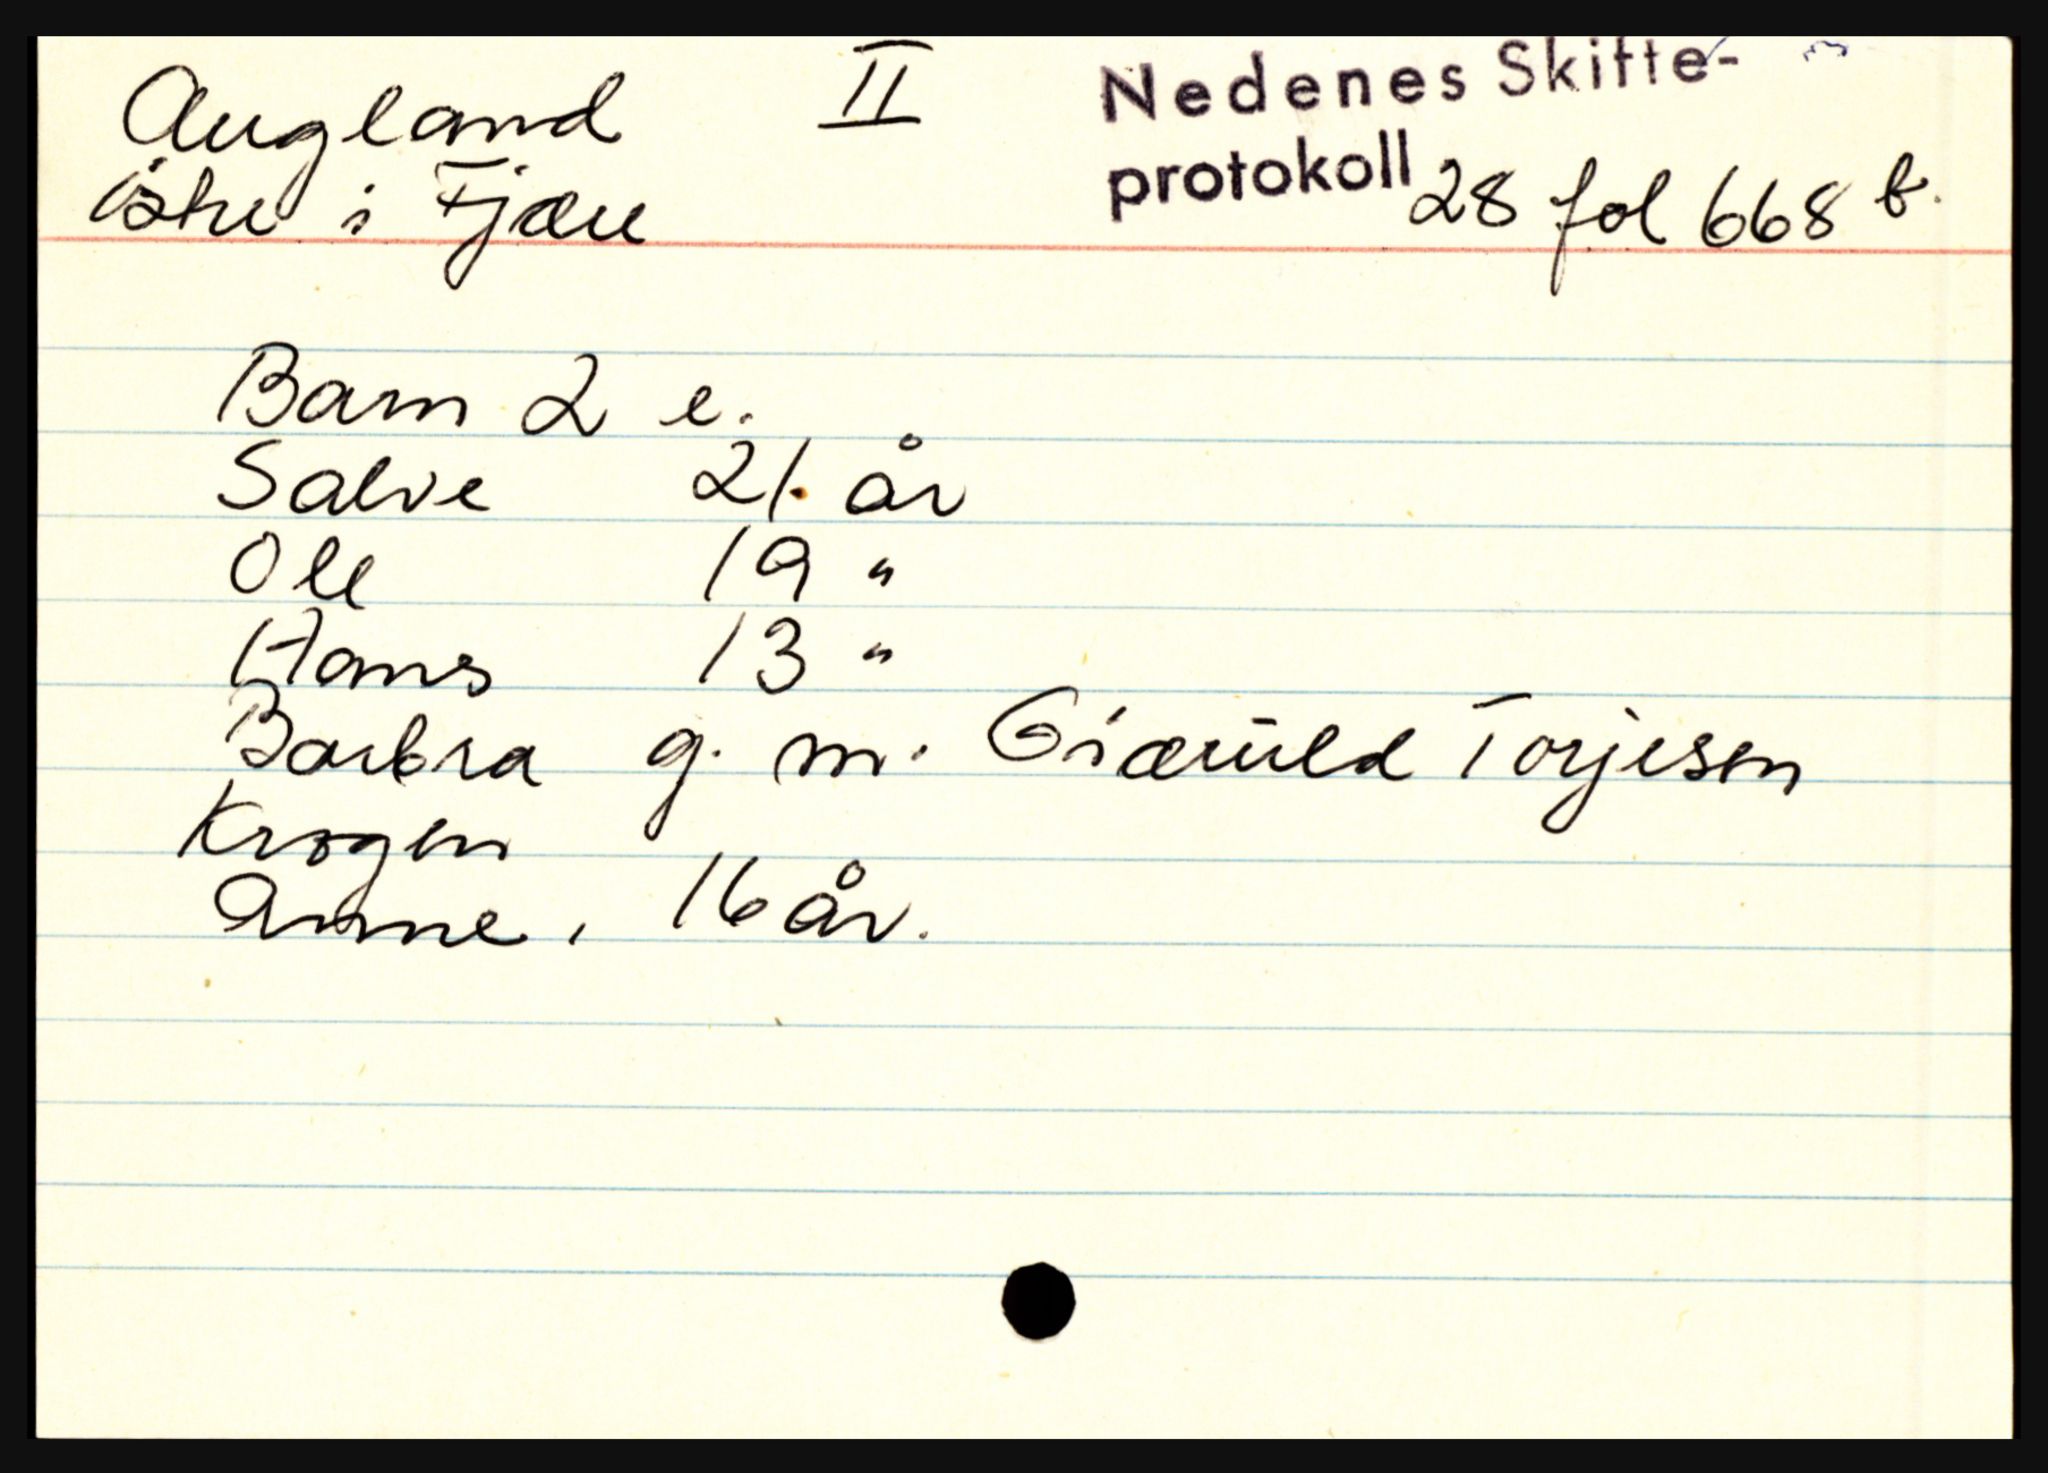 Augland II Nedenes Skifte-
östre i Fjære protokoll 28 fol 668 b.
Barn 2 e.
Salve 21. år
Ole 19 "
Hans 13 "
Barbra g. m. Giæruld Torjesen
Krogen
Anne, 16 år.